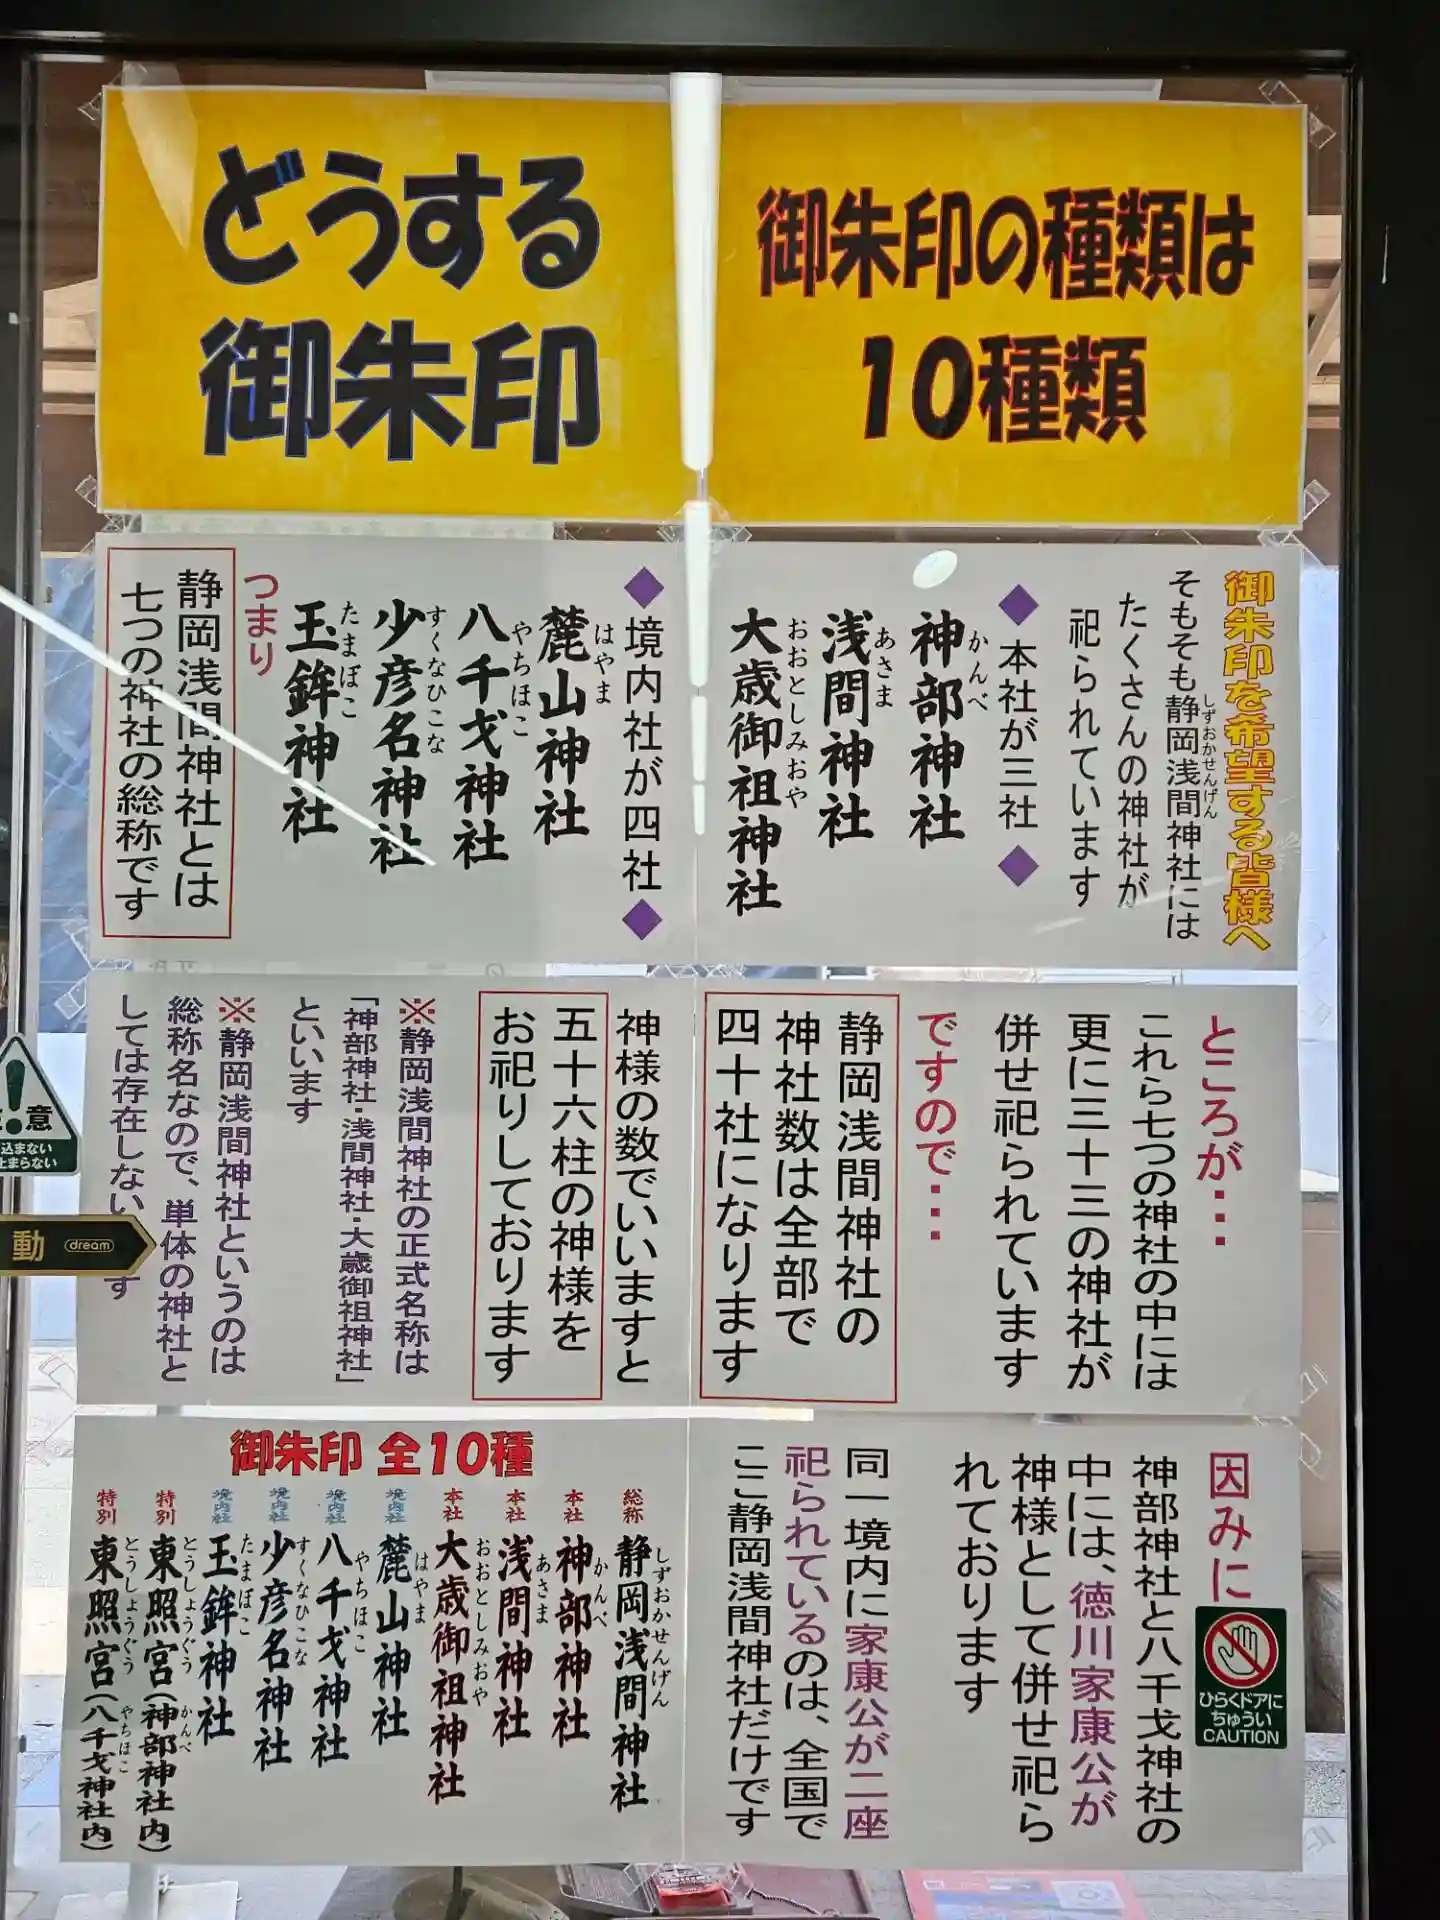 どうする
御朱印
御朱印の種類は
10種類
御朱印を希望する皆様へ
そもそも静岡浅間神社には
しずおかせんげん
たくさんの神社が
祀られています
◆本社が三社◆
神部神社
かんべ
浅間神社
あさま
大歳御祖神社
おおとしみおや
◆境内社が四社◆
麓山神社
はやま
八千戈神社
やちほこ
少彦名神社
すくなひこな
玉鉾神社
たまぼこ
つまり
静岡浅間神社とは
七つの神社の総称です
ところが・・・
これら七つの神社の中には
更に三十三の神社が
併せ祀られています
ですので・・・
静岡浅間神社の
神社数は全部で
四十社になります
神様の数でいいますと
五十六柱の神様を
お祀りしております
※静岡浅間神社の正式名称は
「神部神社・浅間神社・大歳御祖神社」
といいます
※静岡浅間神社というのは
総称名なので、単体の神社と
しては存在しない
す
因みに
神部神社と八千戈神社の
中には、徳川家康公が
神様として併せ祀ら
れております
同一境内に家康公が二座
祀られているのは、全国で
ここ静岡浅間神社だけです
御朱印 全10種
総称
静岡浅間神社
しずおかせんげん
本社
神部神社
かんべ
本社
浅間神社
あさま
本社
大歳御祖神社
おおとしみおや
境内社
麓山神社
はやま
境内社
八千戈神社
やちほこ
境内社
少彦名神社
すくなひこな
境内社
玉鉾神社
たまぼこ
特別
東照宮(神部神社内)
とうしょうぐう
かんべ
特別
東照宮(八千戈神社内)
とうしょうぐう
やちほこ
意
込まない
止まらない
動
dream
ひらくドアに
ちゅうい
CAUTION